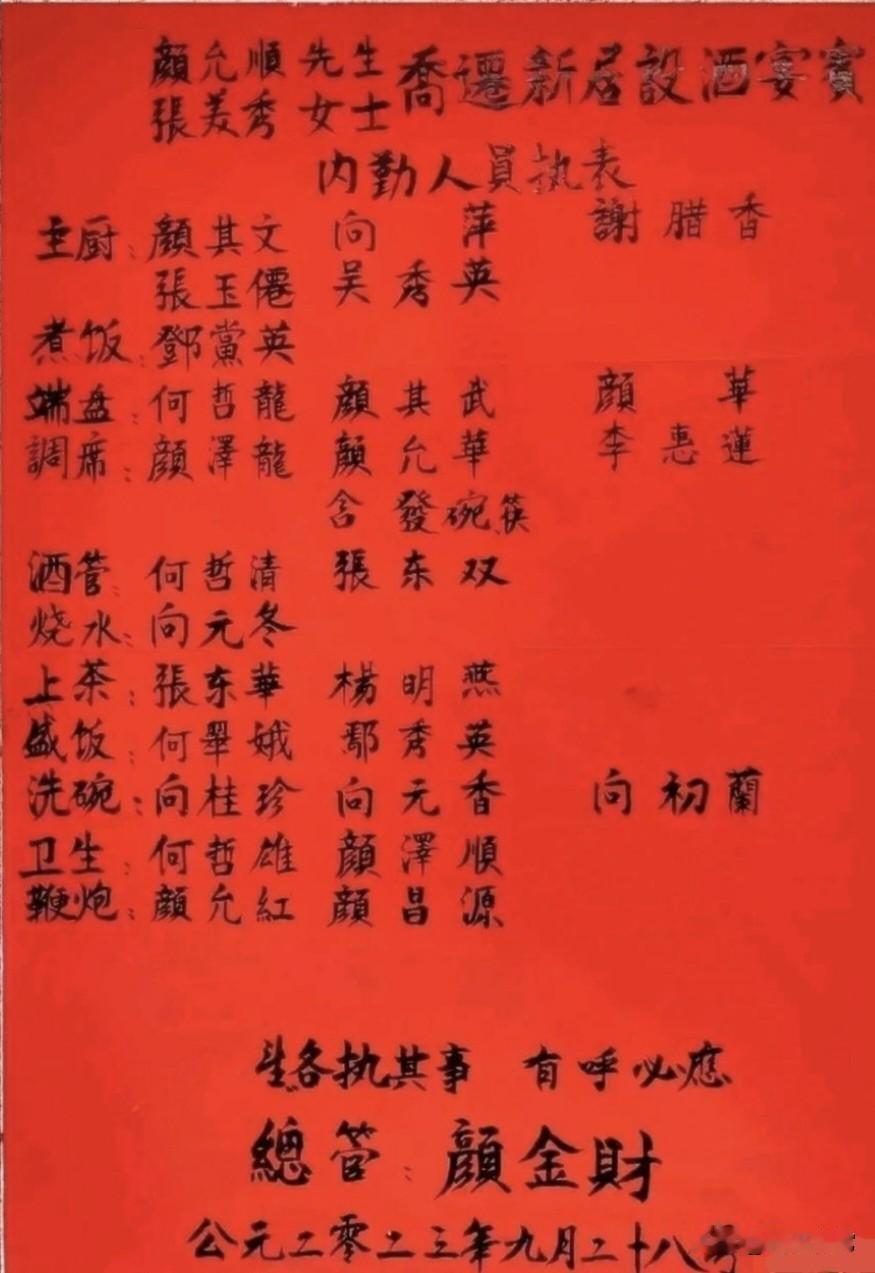 顔允順 先生 喬遷新居設酒宴賓
張美秀 女士
内勤人員执表
主厨：顔其文 向 萍 謝腊香
張玉僊 吴秀英
煮饭：鄧黨英
端盘：何哲龍 顔其武 顔 華
調席：顔澤龍 顔允華 李惠蓮
含發碗筷
酒管：何哲清 張东双
烧水：向元冬
上茶：張东華 楊明燕
盛饭：何翠娥 鄢秀英
洗碗：向桂珍 向元香 向初蘭
卫生：何哲雄 顔澤順
鞭炮：顔允紅 顔昌源
各执其事 有呼必應
總管：顔金財
公元二零二三年九月二十八号